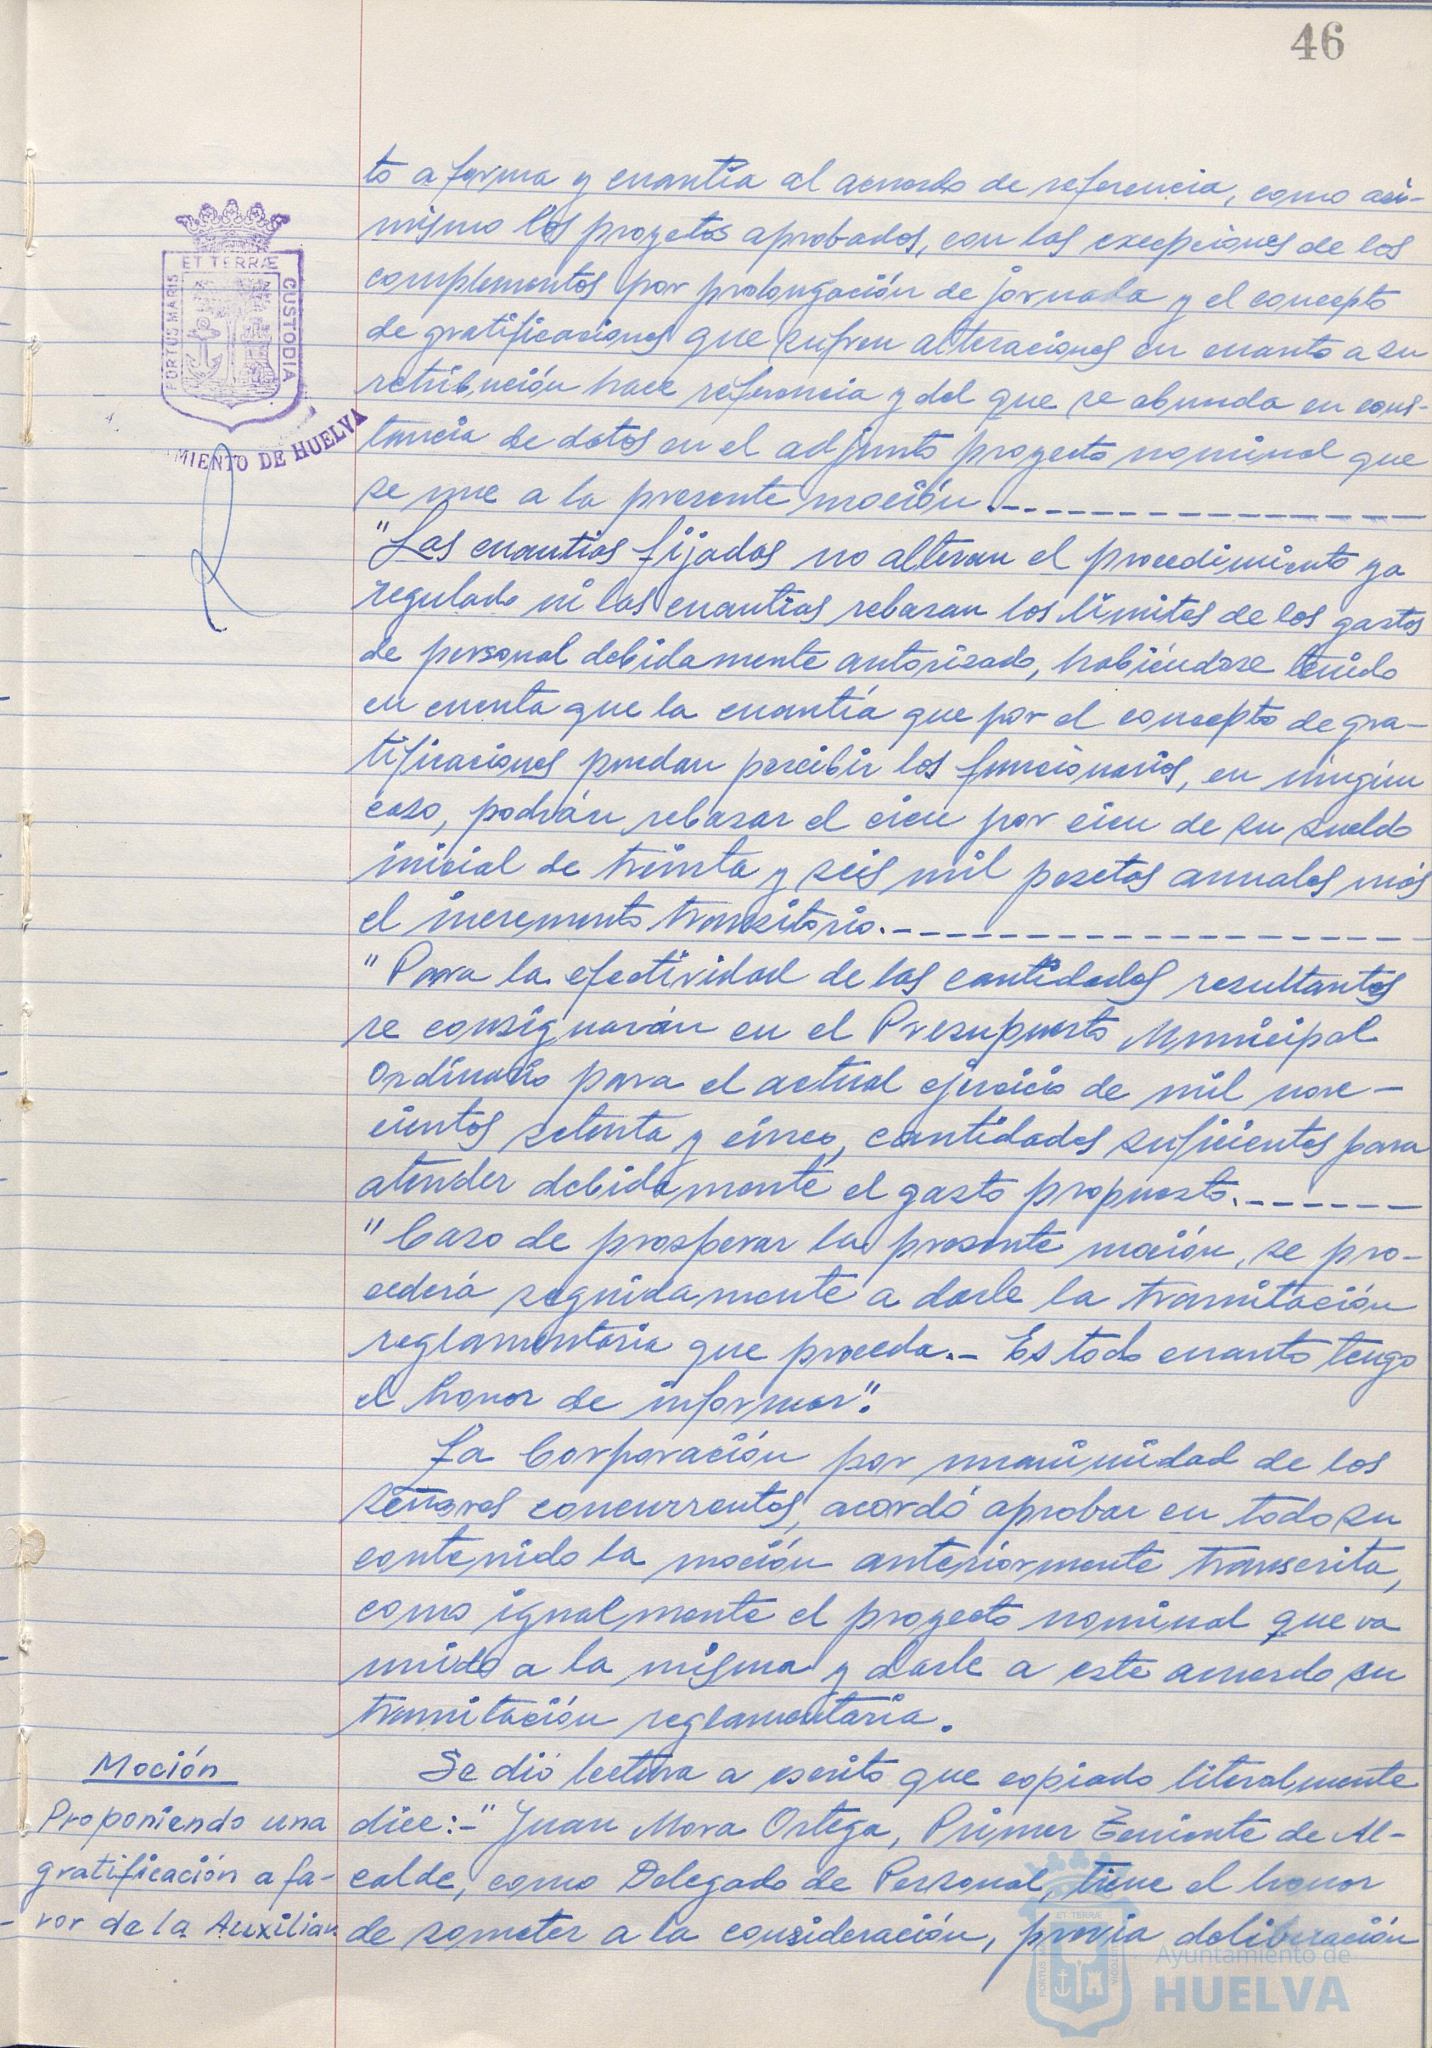 46
to a forma y cuantía al acuerdo de referencia, como asi-
mismo los proyectos aprobados, con las excepciones de los
complementos por prolongación de jornada y el concepto
de gratificaciones que sufren alteraciones en cuanto a su
retribución hace referencia y del que se abunda en cons-
tancia de datos en el adjunto proyecto nominal que
se une a la presente moción.
"Las cuantías fijadas no alteran el procedimiento ya
regulado ni las cuantías rebasan los límites de los gastos
de personal debidamente autorizado, habiéndose tenido
en cuenta que la cuantía que por el concepto de gra-
tificaciones puedan percibir los funcionarios, en ningún
caso, podrán rebasar el cien por cien de su sueldo
inicial de treinta y seis mil pesetas anuales más
el incremento transitorio.
"Para la efectividad de las cantidades resultantes
se consignarán en el Presupuesto Municipal
Ordinario para el actual ejercicio de mil nove-
cientos setenta y cinco, cantidades suficientes para
atender debidamente el gasto propuesto.
"Caso de prosperar la presente moción, se pro-
cederá seguidamente a darle la tramitación
reglamentaria que proceda.- Es todo cuanto tengo
el honor de informar".
La Corporación por unanimidad de los
señores concurrentes, acordó aprobar en todo su
contenido la moción anteriormente transcrita,
como igualmente el proyecto nominal que va
unido a la misma y darle a este acuerdo su
tramitación reglamentaria.
Se dió lectura a escrito que copiado literalmente
dice:-"Juan Mora Ortega, Primer Teniente de Al-
calde, como Delegado de Personal, tiene el honor
de someter a la consideración, previa deliberación
Moción
Proponiendo una
gratificación a fa-
vor de la Auxiliar
PORTUS MARIS
ET TERRÆ
CUSTODIA
MIENTO DE HUELVA
Ayuntamiento de
HUELVA